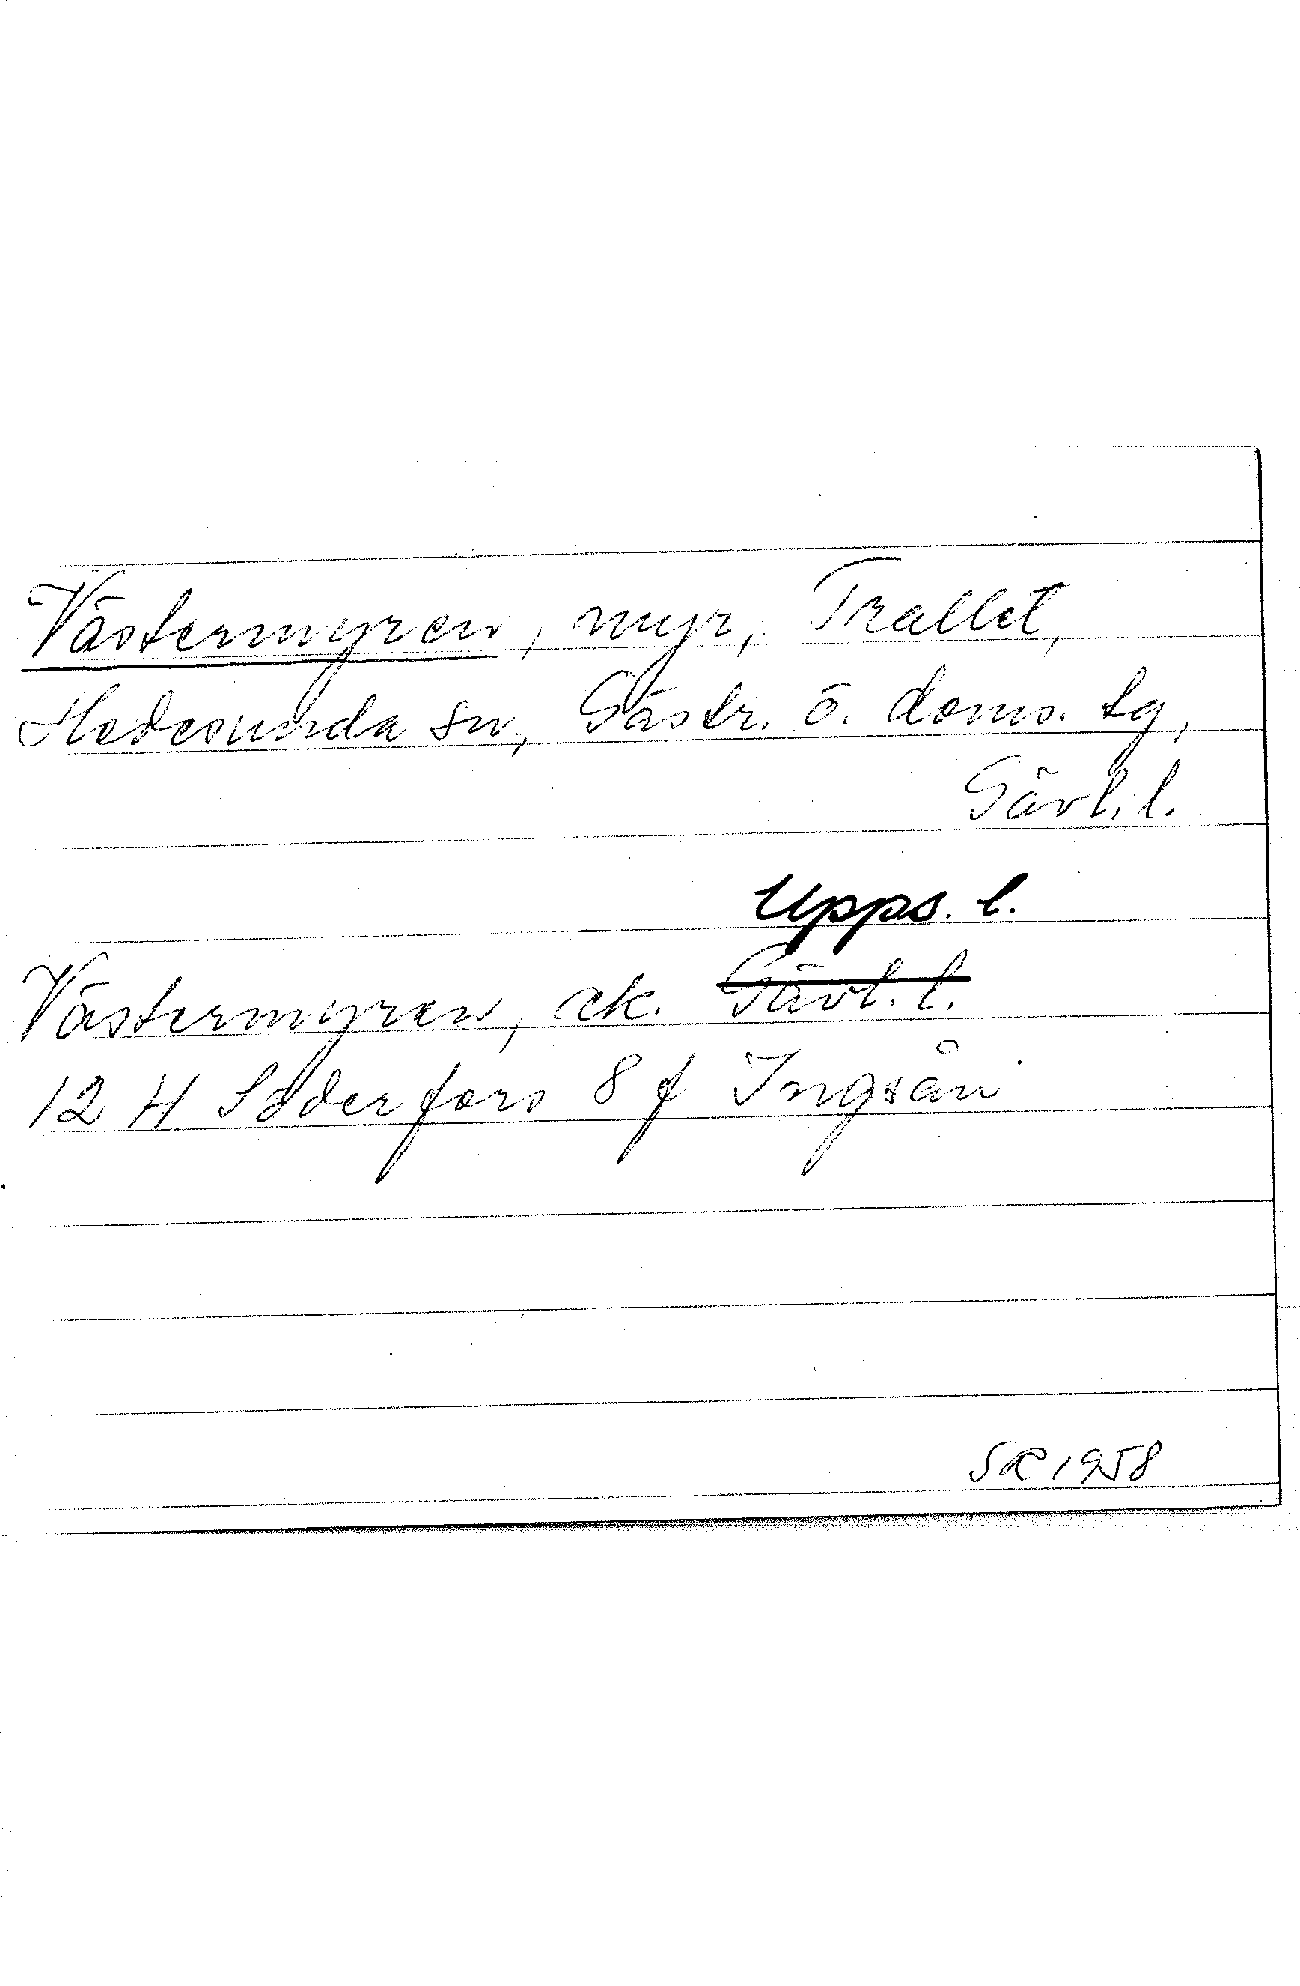 Västermyren, myr, Trallet,
Hedesunda sn, Gästr. ö. doms. tg,
Gävl. l.
Upps. l.
Västermyren, ek. Gävl. l.
12 H Söderfors 8 f Ingsån
SR 1958